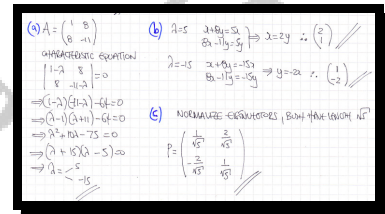 (a) A = ( 1 8
8 -11 )
CHARACTERISTIC EQUATION
| 1-λ 8
8 -11-λ | = 0
⇒ (1-λ)(-11-λ) - 64 = 0
⇒ (λ-1)(λ+11) - 64 = 0
⇒ λ² + 10λ - 75 = 0
⇒ (λ + 15)(λ - 5) = 0
⇒ λ = 5
-15
(b) λ=5 x+8y = 5x
8x-11y = 5y ⇒ x = 2y ∴ ( 2
1 )
λ=-15 x+8y = -15x
8x-11y = -15y ⇒ y = -2x ∴ ( 1
-2 )
(c) NORMALIZE EIGENVECTORS, BOTH HAVE LENGTH √5
P = ( 1/√5 2/√5
-2/√5 1/√5 )